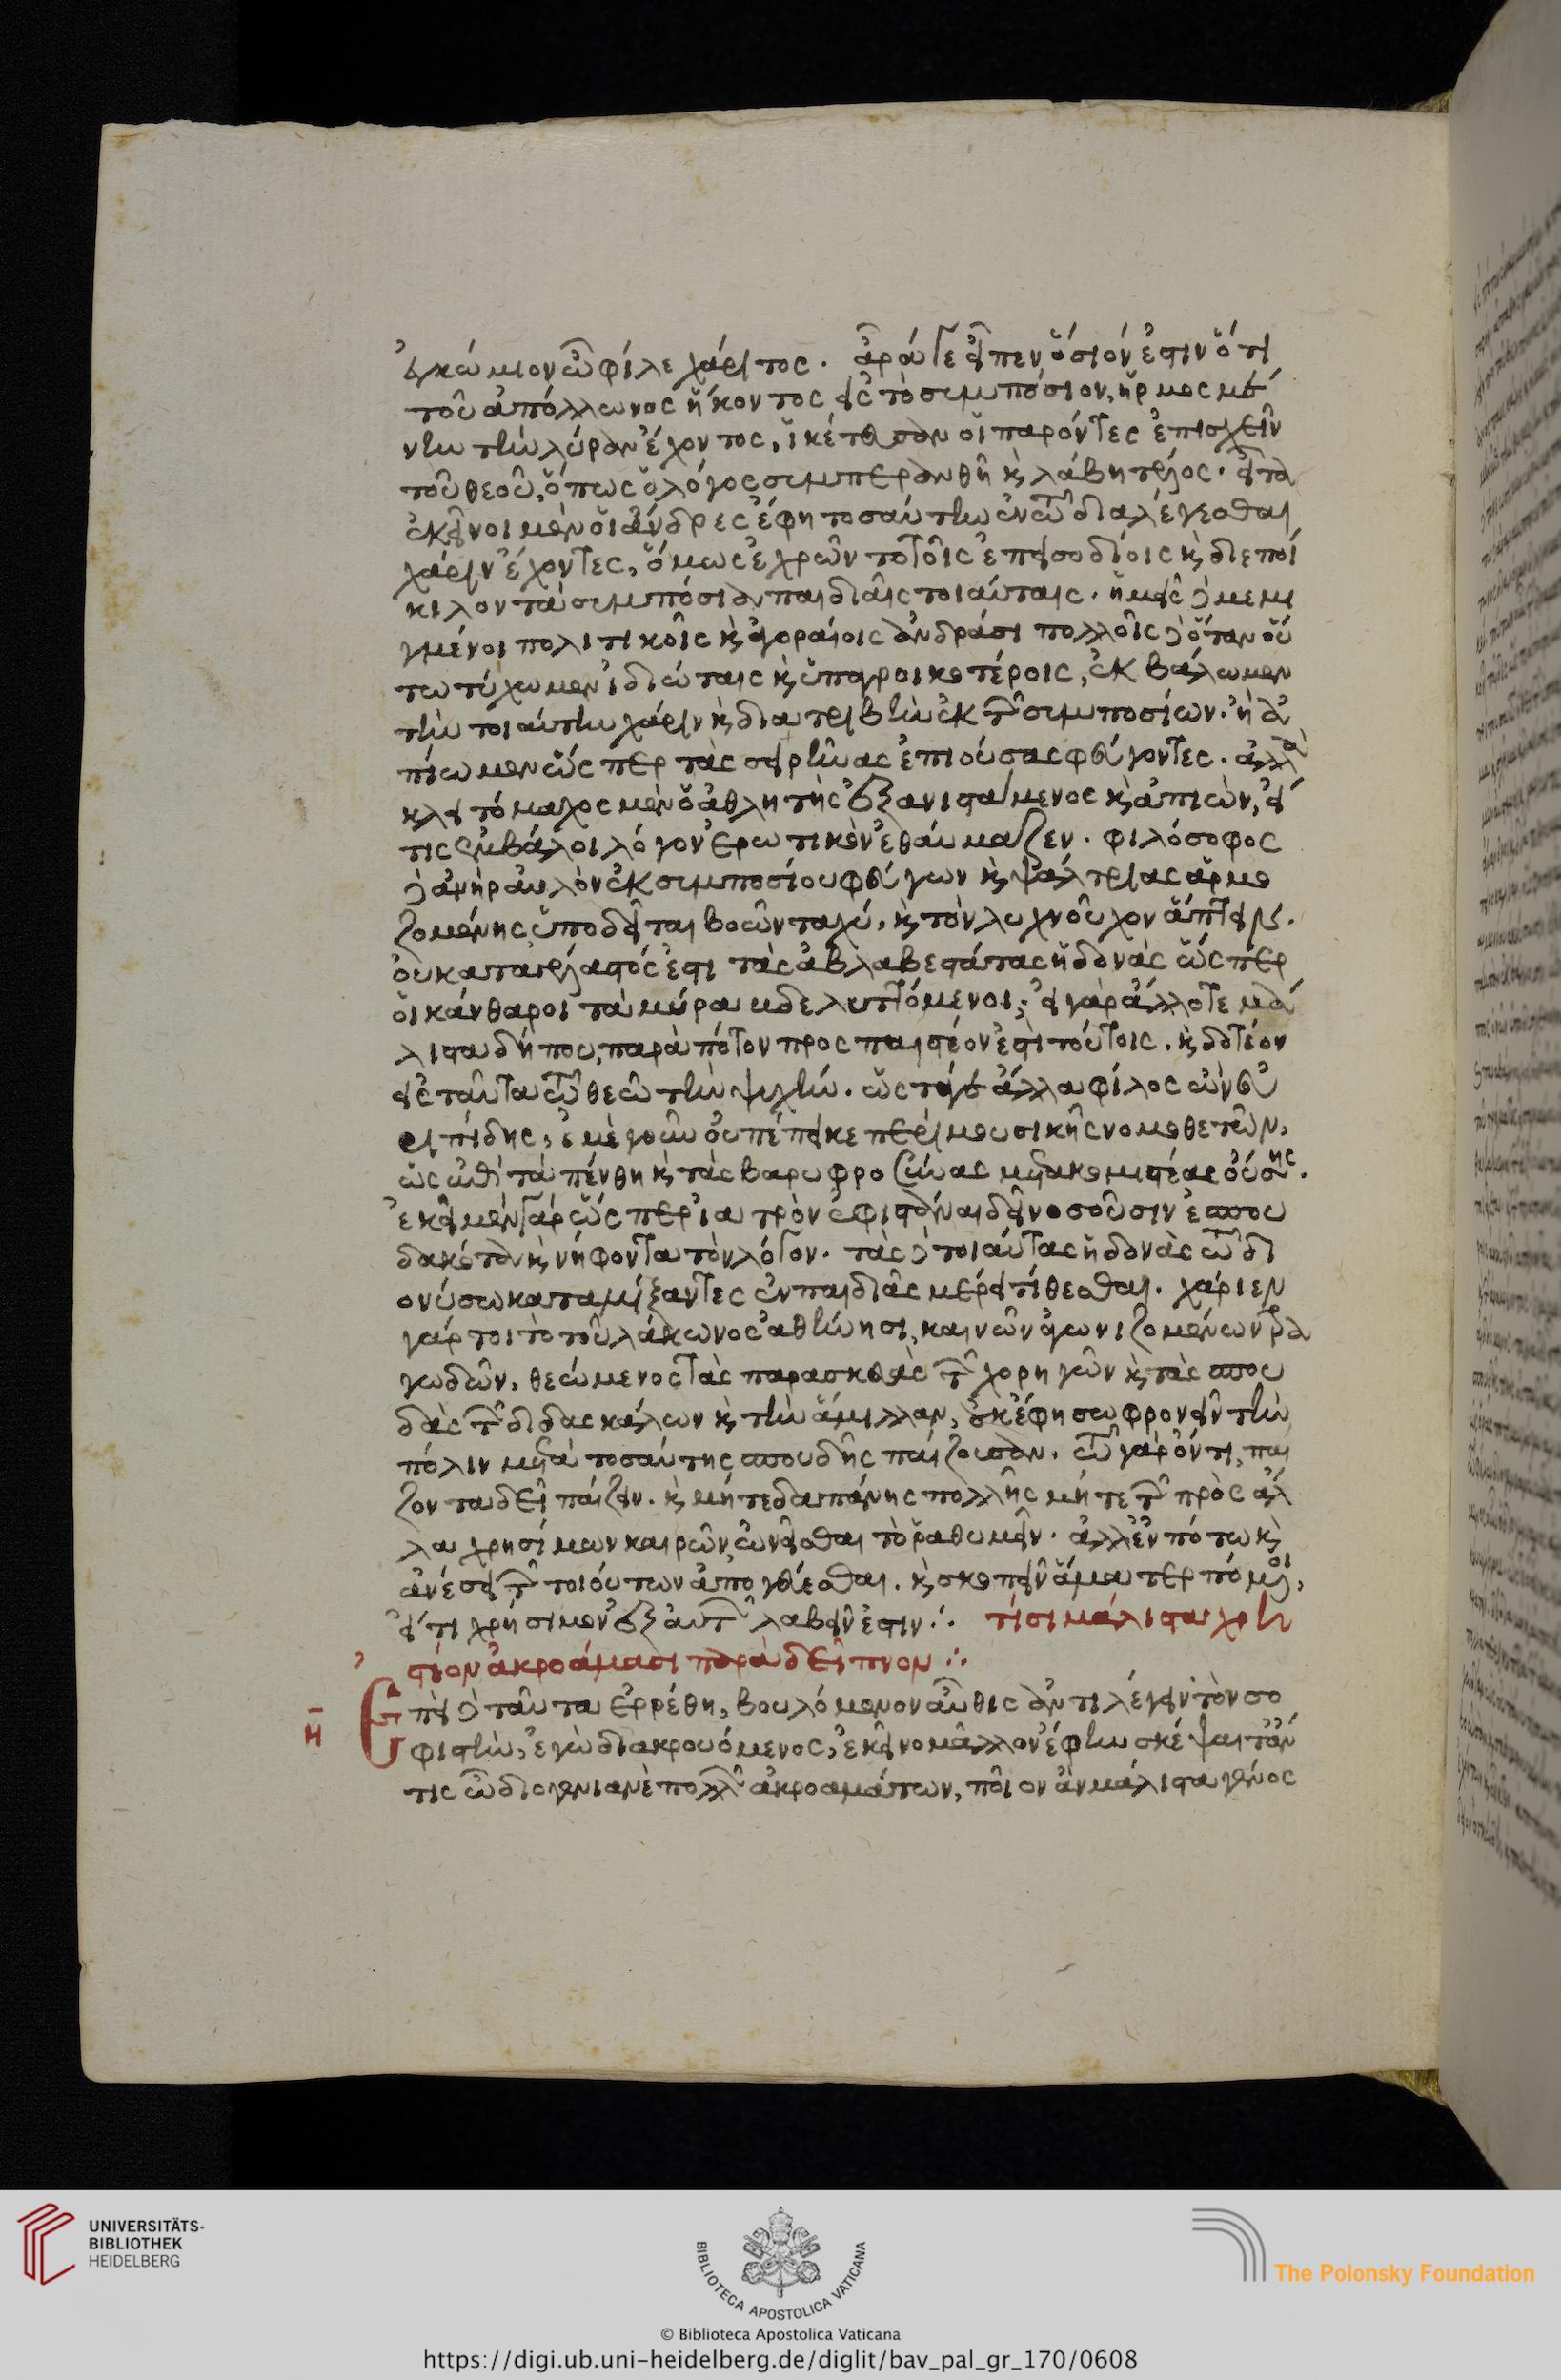 ἐγκώμιον ὦ φίλε χάριτος. ἆρά γε εἶπεν ὅσιόν ἐστιν ὅτι
τοῦ ἀπόλλωνος ἥκοντος εἰς τὸ συμπόσιον, ἡρμοσμέ
νην τὴν λύραν ἔχοντος, ἱκέτευσαν οἱ παρόντες ἐπισχεῖν
τοῦ θεοῦ, ὅπως ὁ λόγος συμπερανθῆ κ λάβη τέλος. εἶτα
ἐκεῖνοι μὲν οἱ ἄνδρες ἔφη τοσαύτην ἐν τῶ διαλέγεσθαι
χάριν ἔχοντες, ὅμως ἐχρῶντο τοῖς ἐπεισοδίοις κ διεποί
κιλον τὰ συμπόσια παιδιαῖς τοιαύταις. ἡμεῖς δὲ μεμι
γμένοι πολιτικοῖς κ ἀγοραίοις ἀνδράσι πολλοῖς δὲ ὅταν οὕ
τω τύχωμεν ἰδιώταις κ ὑπαγροικοτέροις, ἐκβάλωμεν
τὴν τοιαύτην χάριν κ διατριβὴν ἐκ τῶν συμποσίων. ἢ ἀ
πίωμεν ὥσπερ τὰς σειρῆνας ἐπιούσας φεύγοντες. ἀλλὰ
κλειτόμαχος μὲν ὁ ἀθλητὴς ἐξανιστάμενος κ ἀπιὼν, εἴ
τις ἐμβάλοι λόγον ἐρωτικὸν ἐθαύμαζεν. φιλόσοφος
δὲ ἀνὴρ αὐλὸν ἐκ συμποσίου φεύγων κ ψαλτρίας ἁρμο
ζομένης ὑποδεῖται βοῶν ταχύ, κ τὸν λυχνοῦχον ἅπτειν.
οὐ καταγέλαστός ἐστι τὰς ἀβλαβεστάτας ἡδονὰς ὥσπερ
οἱ κάνθαροι τὰ μύρα βδελυττόμενοι; εἰ γὰρ ἄλλοτε μά
λιστα δήπου, παρὰ πότον προσπαιστέον ἐστὶ τούτοις. κ δοτέον
εἰς ταῦτα τῶ θεῶ τὴν ψυχήν. ὡς τά γε ἄλλα φίλος ὢν εὐ
ριπίδης, ἐμὲ γοῦν οὐ πέπεικε περὶ μουσικῆς νομοθετῶν,
ὡς ἐπὶ τὰ πένθη κ τὰς βαρυφροσύνας μετακομιστέας οὔσης.
ἐκεῖ μὲν γὰρ ὥσπερ ἰατρὸν ἐφιστάναι δεῖ νοσοῦσιν ἐσπου
δακότα κ νήφοντα τὸν λόγον. τὰς δὲ τοιαύτας ἡδονὰς τῶ δι
ονύσω καταμίξαντες ἐν παιδιᾶς μέρει τίθεσθαι. χάριεν
γάρ τοι τὸ τοῦ λάκωνος ἀθήνησι, καινῶν ἀγωνιζομένων τρα
γωδῶν, θεώμενος τὰς παρασκευὰς τῶν χορηγῶν κ τὰς σπου
δὰς τῶν διδασκάλων κ τὴν ἅμιλλαν, οὐκ ἔφη σωφρονεῖν τὴν
πόλιν μετὰ τοσαύτης σπουδῆς παίζουσαν. τῶ γὰρ ὄντι, παί
ζοντα δεῖ παίζειν. κ μήτε δαπάνης πολλῆς μήτε τῶν πρὸς ἄλ
λα χρησίμων καιρῶν, ὠνεῖσθαι τὸ ῥαθυμεῖν. ἀλλ' ἐν πότω κ
ἀνέσει τῶν τοιούτων ἀπογεύεσθαι. κ σκοπεῖν ἅμα τερπόμενοι,
εἴ τι χρήσιμον ἐξ αὐτῶν λαβεῖν ἐστιν ∴ τίσι μάλιστα χρη
στέον ἀκροάμασι παρὰ δεῖπνον ∴
Η Ἐπεὶ δὲ ταῦτα ἐρρέθη, βουλόμενον αὖθις ἀντιλέγειν τὸν σο
φιστὴν, ἐγὼ διακρουόμενος, ἐκεῖνο μᾶλλον ἔφην σκέψαιτ' ἄν
τις ὦ διογενιανὲ πολλῶν ἀκροαμάτων, ποῖον ἂν μάλιστα γένος
UNIVERSITÄTS-
BIBLIOTHEK
HEIDELBERG
BIBLIOTECA APOSTOLICA VATICANA
The Polonsky Foundation
© Biblioteca Apostolica Vaticana
https://digi.ub.uni-heidelberg.de/diglit/bav_pal_gr_170/0608